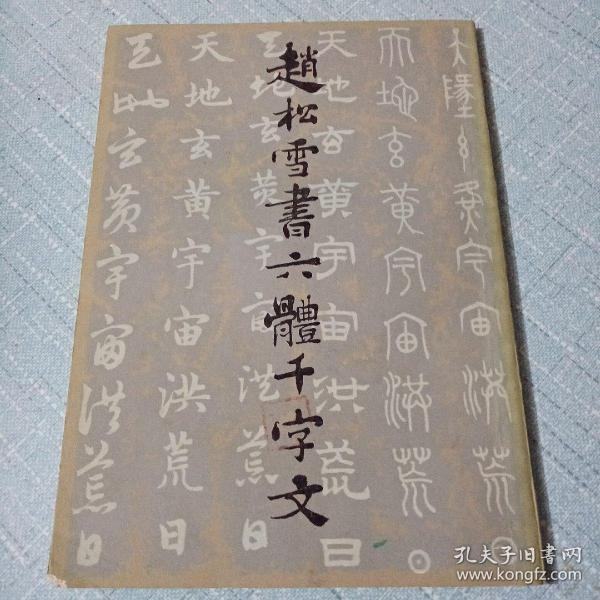 趙松雪書六體千字文
而地玄黃宇宙洪荒日
天地玄黃宇宙洪荒日
天地玄黃宇宙洪荒日
天地玄黃宇宙洪荒日
天地玄黃宇宙洪荒日
孔夫子旧书网
www.kongfz.com